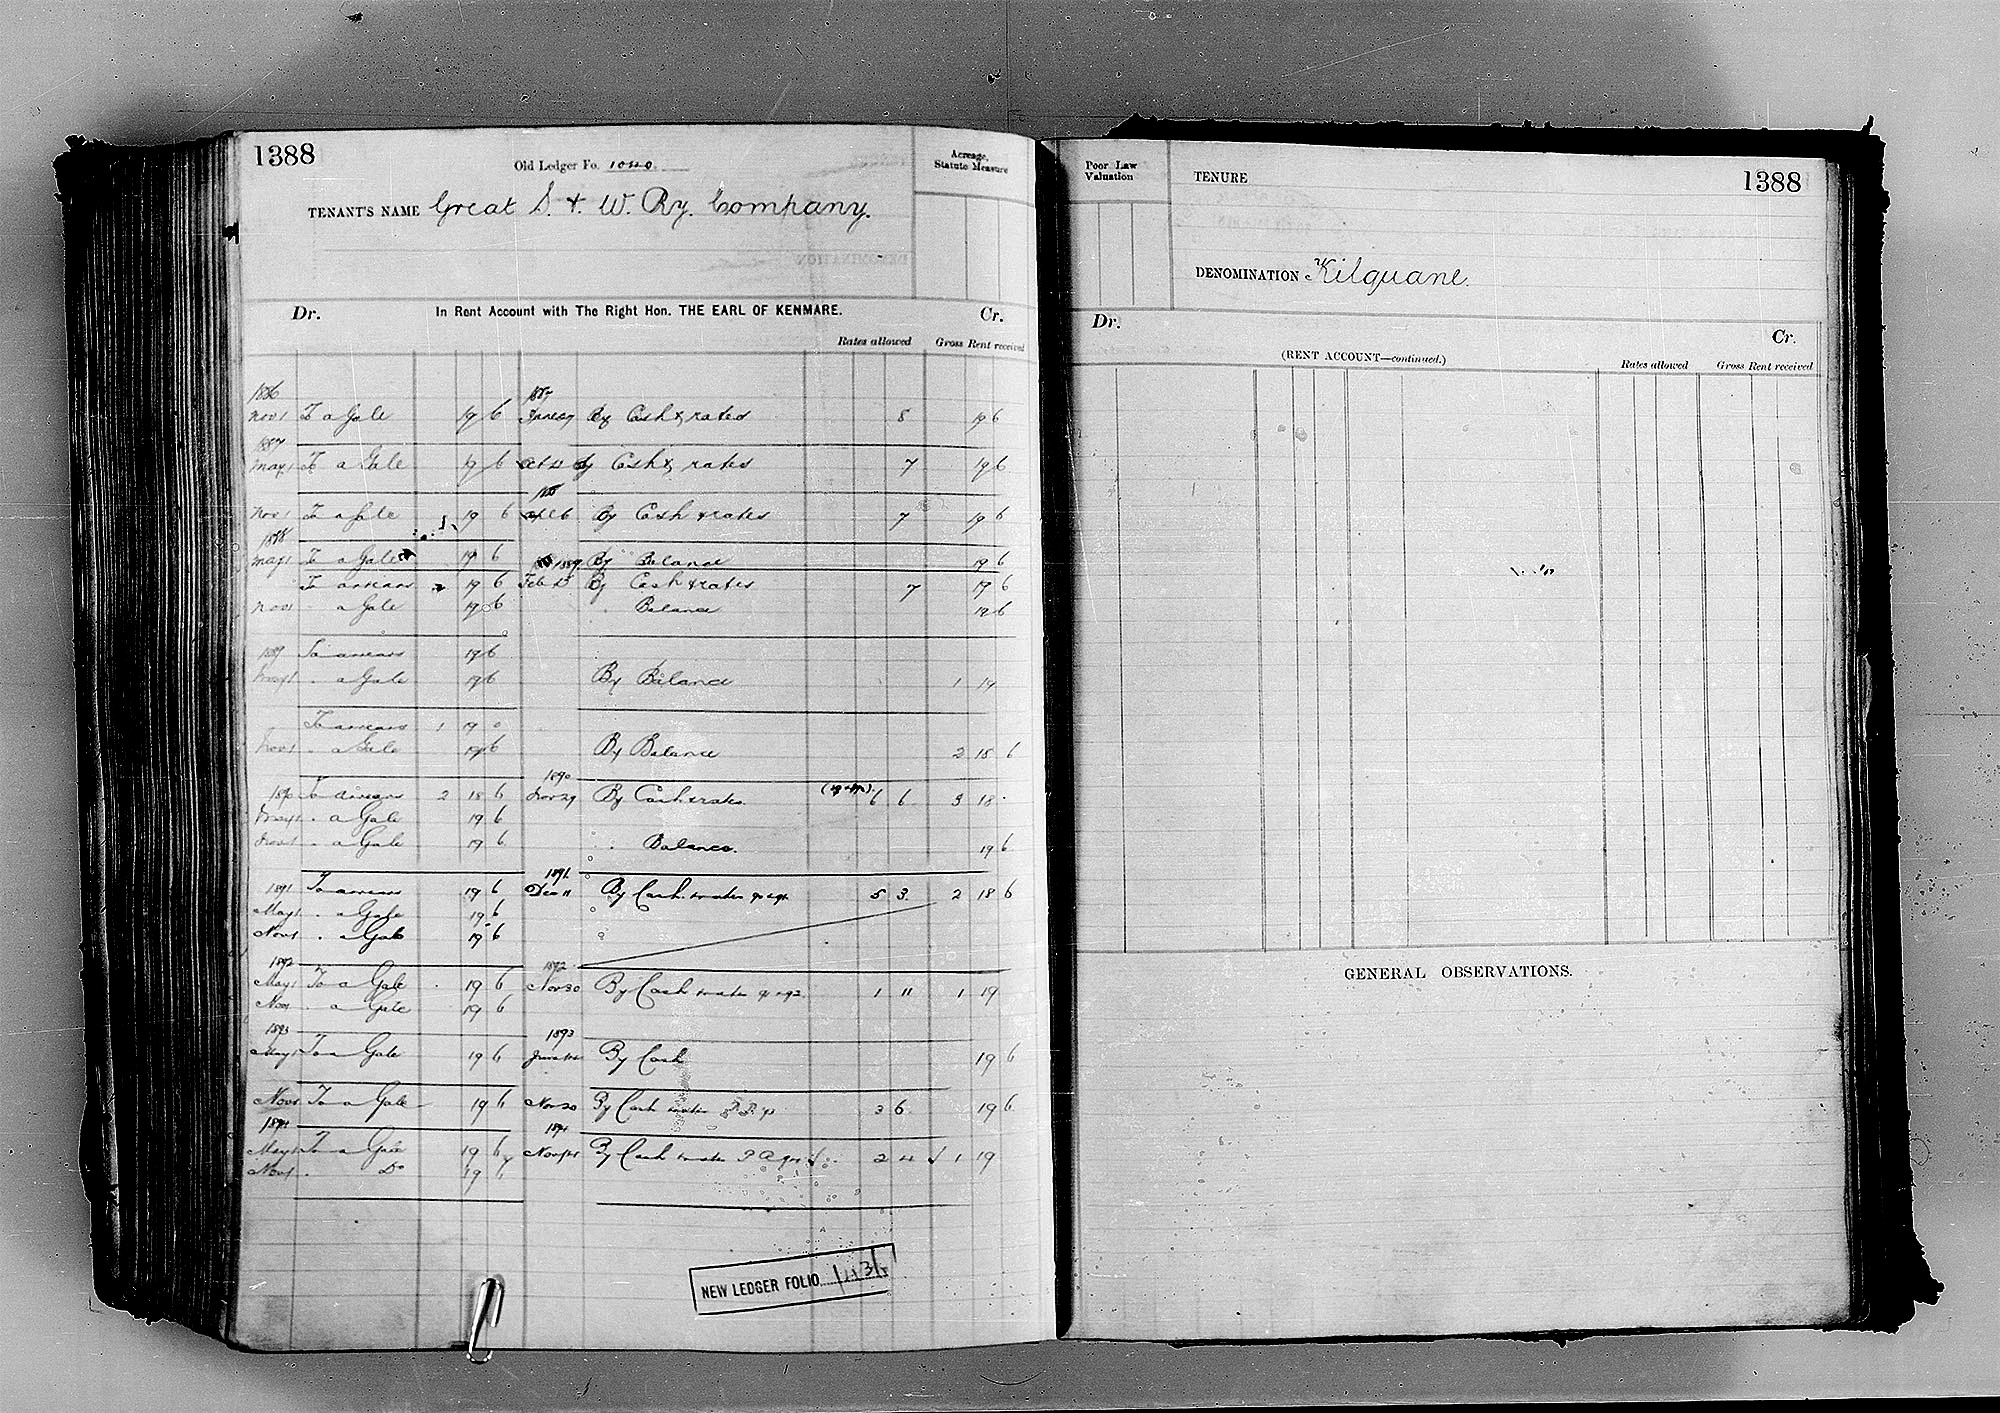 1388
Old Ledger Fo. 1020
Acreage, Statute Measure
TENANT'S NAME Great S. & W. Ry. Company.
Dr. In Rent Account with The Right Hon. THE EARL OF KENMARE. Cr.
Rates allowed Gross Rent received
1886 1887
Nov 1 To a Gale 19 6 By Cash & rates 8 19 6
1887
May 1 To a Gale 19 6 Oct By Cash & rates 7 19 6
Nov 1 To a Gale 19 6 By Cash & rates 7 19 6
1888
May 1 To a Gale 19 6 By Balance 19 6
1889
To arrears 19 6 Feb By Cash & rates 7 19 6
Nov 1 " a Gale 19 6 " Balance 19 6
1889 To arrears 19 6
May 1 " a Gale 19 6 By Balance 1 19
To arrears 1 19 0
Nov 1 " a Gale 19 6 By Balance 2 18 6
1890
1890 To arrears 2 18 6 Nov 29 By Cash & rates 6 6 3 18 "
May 1 " a Gale 19 6
Nov 1 " a Gale 19 6 " Balance. 19 6
1891
1891 To arrears 19 6 Dec 11 By Cash & rates 5 3 2 18 6
May 1 " a Gale 19 6
Nov 1 " a Gale 19 6
1892 1892
May 1 To a Gale 19 6 Nov 30 By Cash & rates 1 11 1 19
Nov " a Gale 19 6
1893 1893
May 1 To a Gale 19 6 June By Cash 19 6
Nov 1 To a Gale 19 6 Nov 20 By Cash & rates 3 6 19 6
1894 1894
May 1 To a Gale 19 6 Nov By Cash & rates 2 4 1 19
Nov 1 " Do 19 6
NEW LEDGER FOLIO
Poor Law Valuation
TENURE
1388
DENOMINATION Kilquane.
Dr. Cr.
(RENT ACCOUNT—continued.)
Rates allowed Gross Rent received
GENERAL OBSERVATIONS.